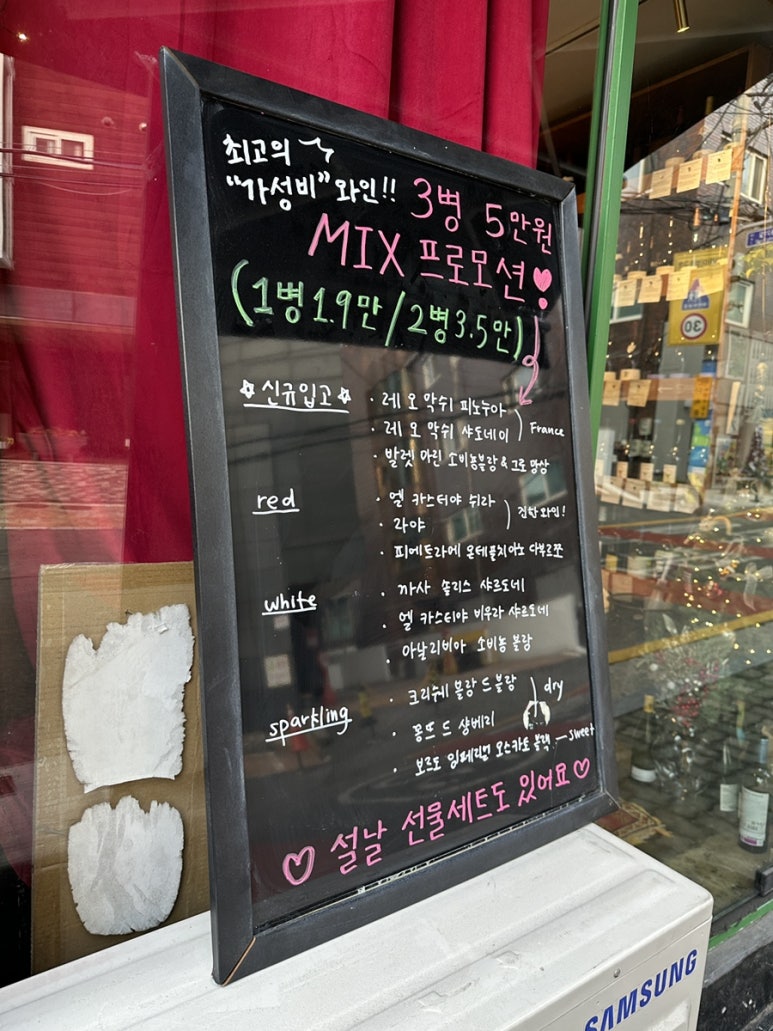 최고의
"가성비" 와인!!
3병 5만원
MIX 프로모션
(1병1.9만/2병3.5만)
신규입고
· 레 오 막쉬 피노누아
· 레 오 막쉬 샤도네이
France
· 발렛 마린 소비뇽블랑 & 그로 망상
red
· 엘 카스티야 쉬라
· 라야
진한와인!
· 피에트라에 몬테풀치아노 다부르쪼
white
· 까사 솔리스 샤르도네
· 엘 카스티야 비우라 샤르도네
· 아날리비아 소비뇽 블랑
sparkling
· 크리쉐 블랑 드 블랑
dry
· 몽프 드 샹베리
· 보르도 임페리얼 오스카토 블랙 - sweet
설날 선물세트도 있어요
SAMSUNG
30